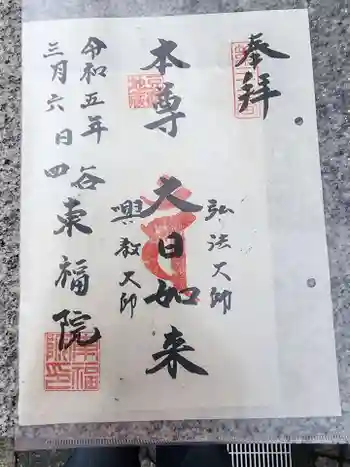 奉拝
弘法大師
本尊 大日如来
興教大師
令和五年
三月六日
四谷 東福院